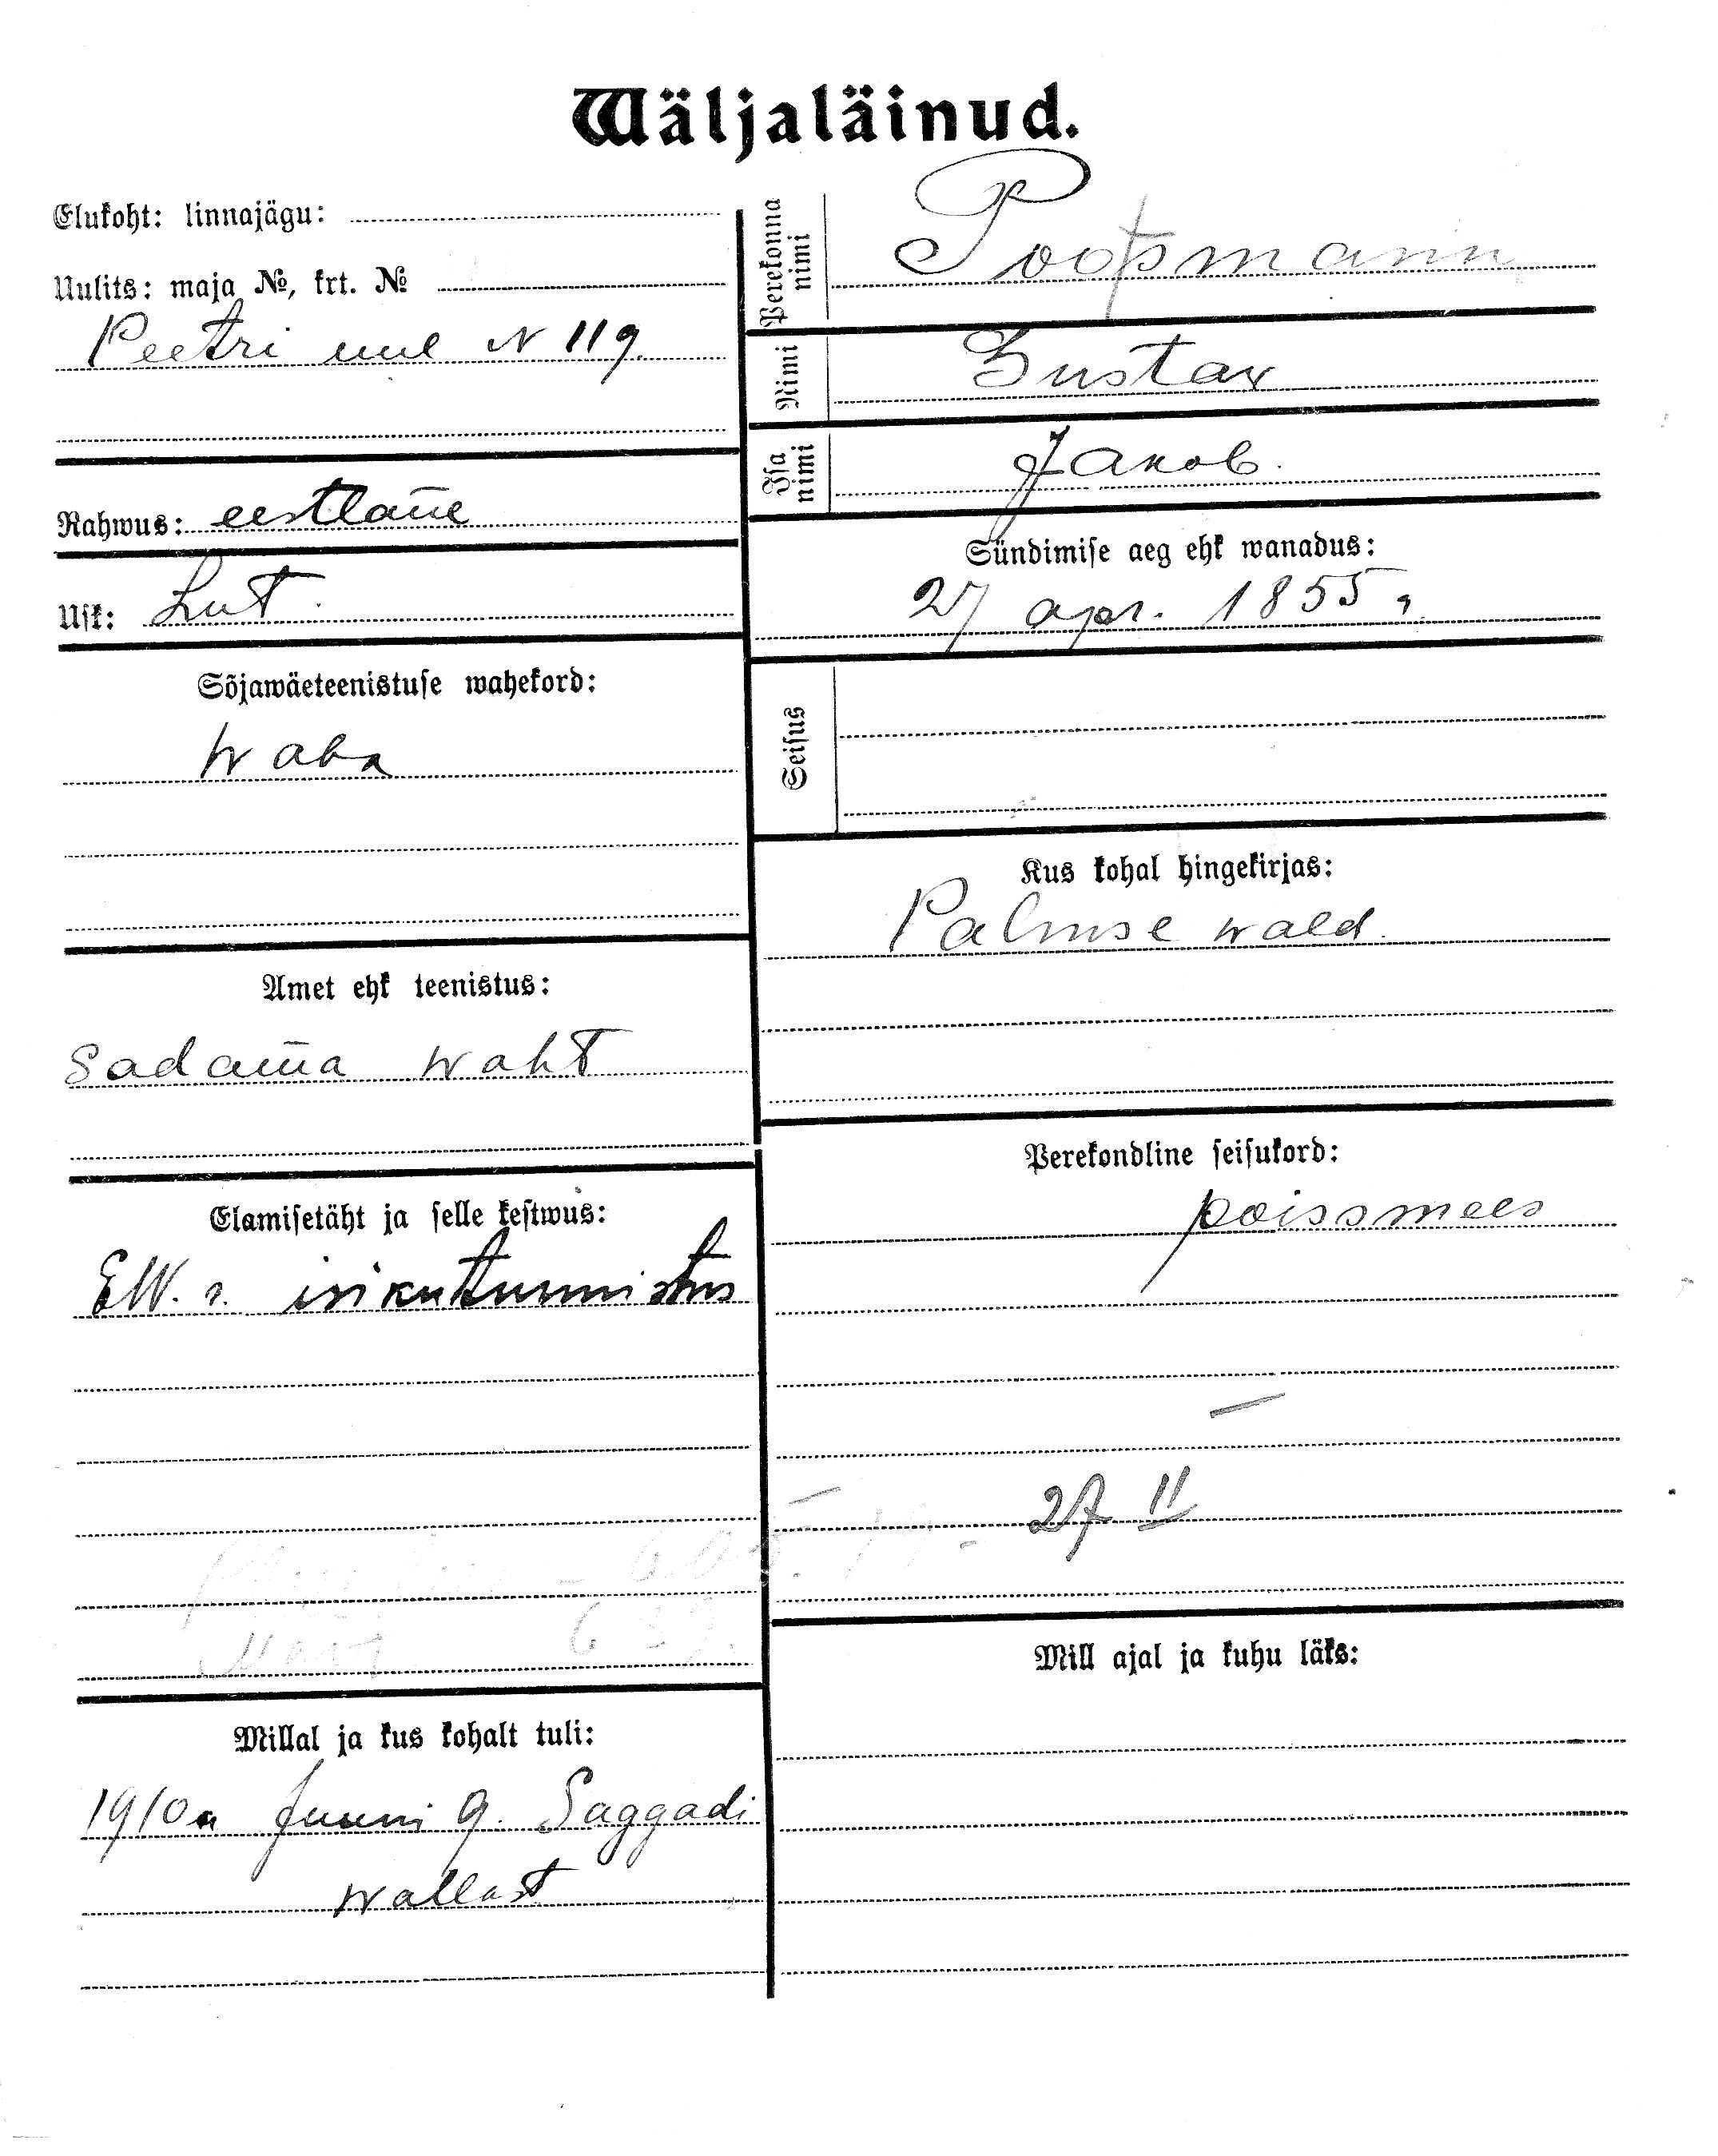 Wäljaläinud.
Elukoht: linnajägu:
Uulits: maja №, krt. №
Peetri uul N 119.
Rahwus: eestlane
Usk: Lut.
Sõjawäeteenistuse wahekord:
waba
Amet ehk teenistus:
Sadama waht
Elamisetäht ja selle kestwus:
E.W. s. isikutunnistus
Millal ja kus kohalt tuli:
1910 a Juuni 9. Saggadi
wallast
Perekonna nimi
Poopmann
Nimi
Gustav
Isa nimi
Jakob.
Sündimise aeg ehk wanadus:
27 apr. 1855 a
Seisus
Kus kohal hingekirjas:
Palmse wald.
Perekondline seisukord:
poissmees
27 II
Mill ajal ja kuhu läks: